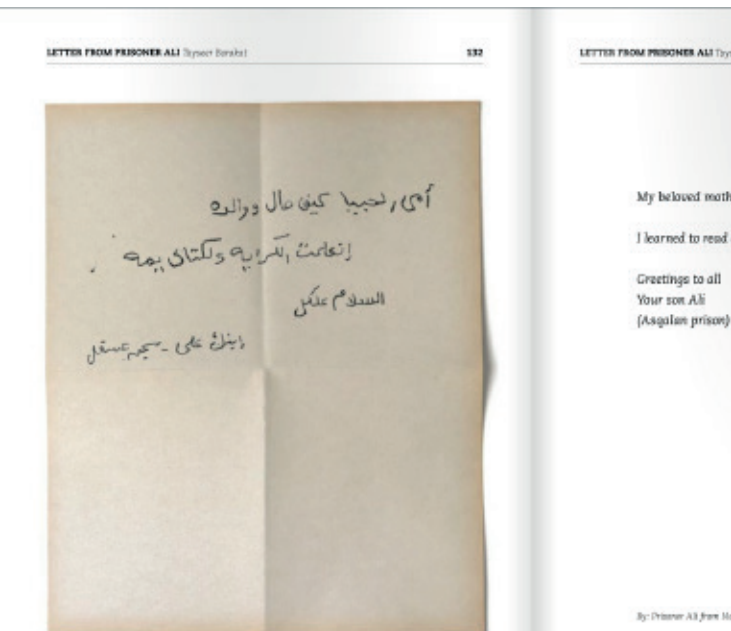 LETTER FROM PRISONER ALI Tayseer Barakat
132
أمي الحبيبا كيف حال ووالده
إتعلمت الكرايه ولكتابي يمه
السلام علكل
إبنك علي - سجن عسقل
LETTER FROM PRISONER ALI
My beloved
I learned to read
Greetings to all
Your son Ali
(Asqalan prison)
By: Prisoner Ali from